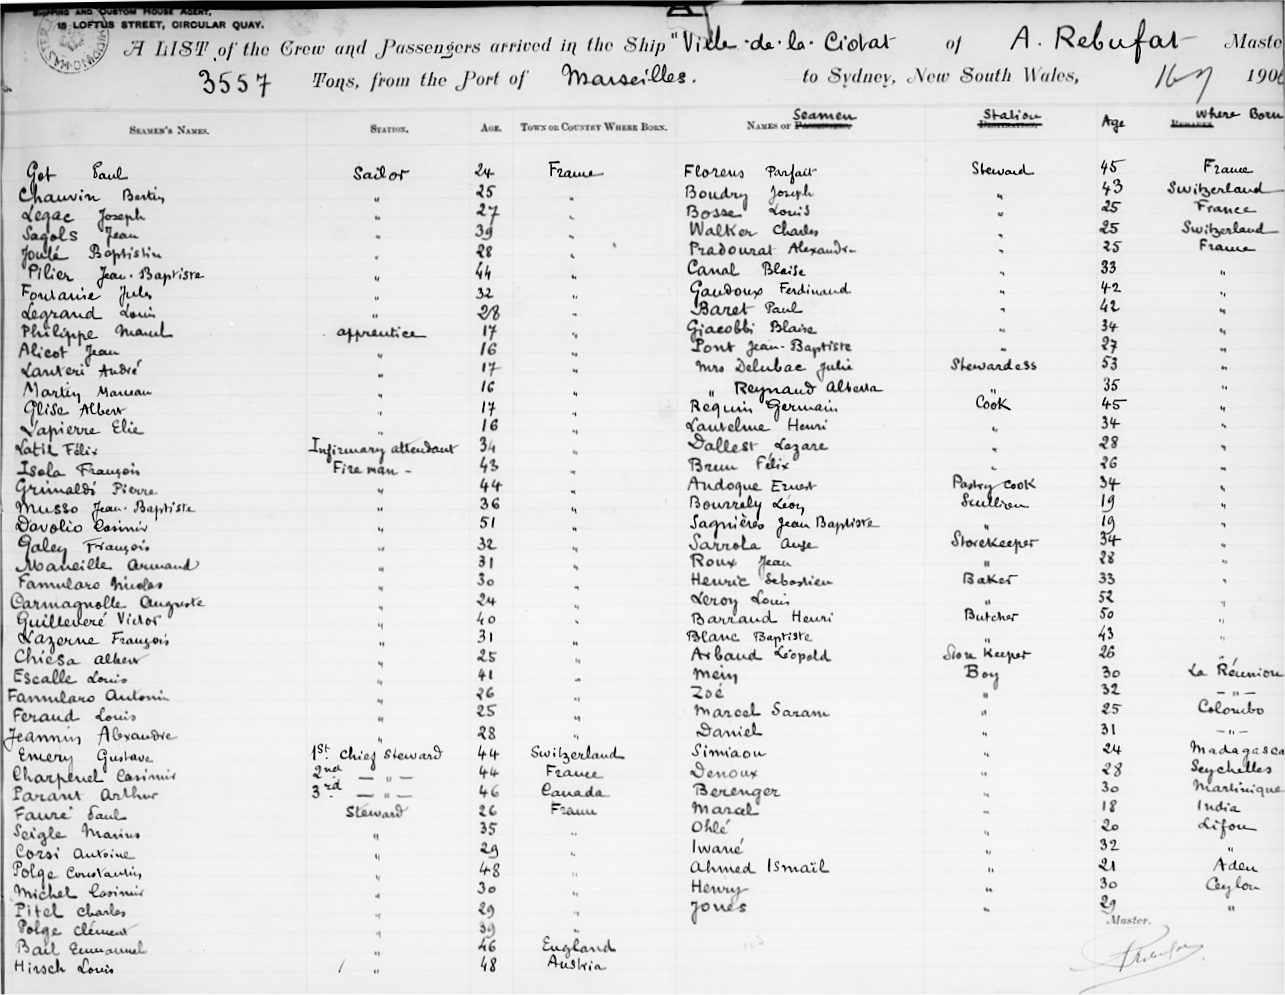 SHIPPING AND CUSTOM HOUSE AGENT,
15 LOFTUS STREET, CIRCULAR QUAY.
A LIST of the Crew and Passengers arrived in the Ship "Ville-de-la-Ciotat of A. Rebufat Maste
3557 Tons, from the Port of Marseilles. to Sydney, New South Wales, 190
SEAMEN'S NAMES. STATION. AGE. TOWN OR COUNTRY WHERE BORN.
Got Paul Sailor 24 France
Chauvin Bertin " 25 "
Legac Joseph " 27 "
Sagols Jean " 39 "
Joulé Baptistin " 28 "
Pilier Jean-Baptiste " 44 "
Fontaine Jules " 32 "
Legrand Louis " 28 "
Philippe Marcel apprentice 17 "
Alicot Jean " 16 "
Lanteri André " 17 "
Martin Marceau " 16 "
Glise Albert " 17 "
Lapierre Elie " 16 "
Latil Félix Infirmary attendant 34 "
Isola François Fireman - 43 "
Grimaldi Pierre " 44 "
Musso Jean-Baptiste " 36 "
Davolio Casimir " 51 "
Galey François " 32 "
Maneille Armand " 31 "
Famularo Nicolas " 30 "
Carmagnolle Auguste " 24 "
Guilleveré Victor " 40 "
Lazerne François " 31 "
Chiesa Albert " 25 "
Escalle Louis " 41 "
Famularo Antonin " 26 "
Feraud Louis " 25 "
Jeannin Alexandre " 28 "
Emery Gustave 1st. Chief Steward 44 Switzerland
Charpenel Casimir 2nd — " — 44 France
Parant Arthur 3rd — " — 46 Canada
Fauré Paul Steward 26 France
Seigle Marius " 35 "
Corsi Antoine " 29 "
Polge Constantin " 48 "
Michel Casimir " 30 "
Pitel Charles " 29 "
Polge Clément " 39 "
Bail Emmanuel " 46 England
Hirsch Louis " 48 Austria
Seamen Station Where Born
NAMES OF PASSENGERS. DESTINATION. Age REMARKS
Florens Parfait Steward 45 France
Boudry Joseph " 43 Switzerland
Bosse Louis " 25 France
Walker Charles " 25 Switzerland
Pradourat Alexandre " 25 France
Canal Blaise " 33 "
Gaudoux Ferdinand " 42 "
Baret Paul " 42 "
Giacobbi Blaise " 34 "
Pont Jean-Baptiste " 27 "
Mrs Delubac Julie Stewardess 53 "
" Reynaud Alberta " 35 "
Requin Germain Cook 45 "
Lautelme Henri " 34 "
Dallest Lazare " 28 "
Brun Félix " 26 "
Andoque Ernest Pastry cook 34 "
Bourrely Léon Scullion 19 "
Sagnières Jean Baptiste " 19 "
Sarrola Ange Storekeeper 34 "
Roux Jean " 28 "
Henric Sebastien Baker 33 "
Leroy Louis " 52 "
Barrand Henri Butcher 50 "
Blanc Baptiste " 43 "
Arbaud Léopold Store Keeper 26 "
Mein Boy 30 La Réunion
Zoé " 32 — " —
Marcel Saram " 25 Colombo
Daniel " 31 — " —
Simiaou " 24 Madagasca
Denoux " 28 Seychelles
Berenger " 30 Martinique
Maral " 18 India
Ohlé " 20 Lifou
Iwané " 32 "
Ahmed Ismaïl " 21 Aden
Henry " 30 Ceylon
Jones " 29 "
Master.